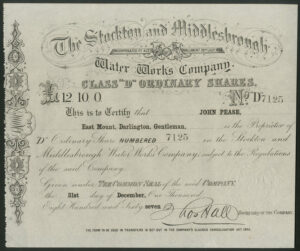 The Stockton and Middlesbrough
INCORPORATED BY ACT
Water Works Company.
CLASS "D" ORDINARY SHARES,
£12 10 0 No. D7125
This is to Certify that JOHN PEASE,
East Mount, Darlington, Gentleman, is the Proprietor of
"D" Ordinary Share NUMBERED 7125 in the Stockton and
Middlesbrough Water Works Company, subject to the Regulations
of the said Company.
Given under THE COMMON SEAL of the said COMPANY
the 31st day of December, One Thousand
Eight Hundred and Sixty seven
Thos Hall SECRETARY OF THE COMPANY.
THE FORM TO BE USED IN TRANSFERS IS SET OUT IN THE COMPANY'S CLAUSES CONSOLIDATION ACT 1845